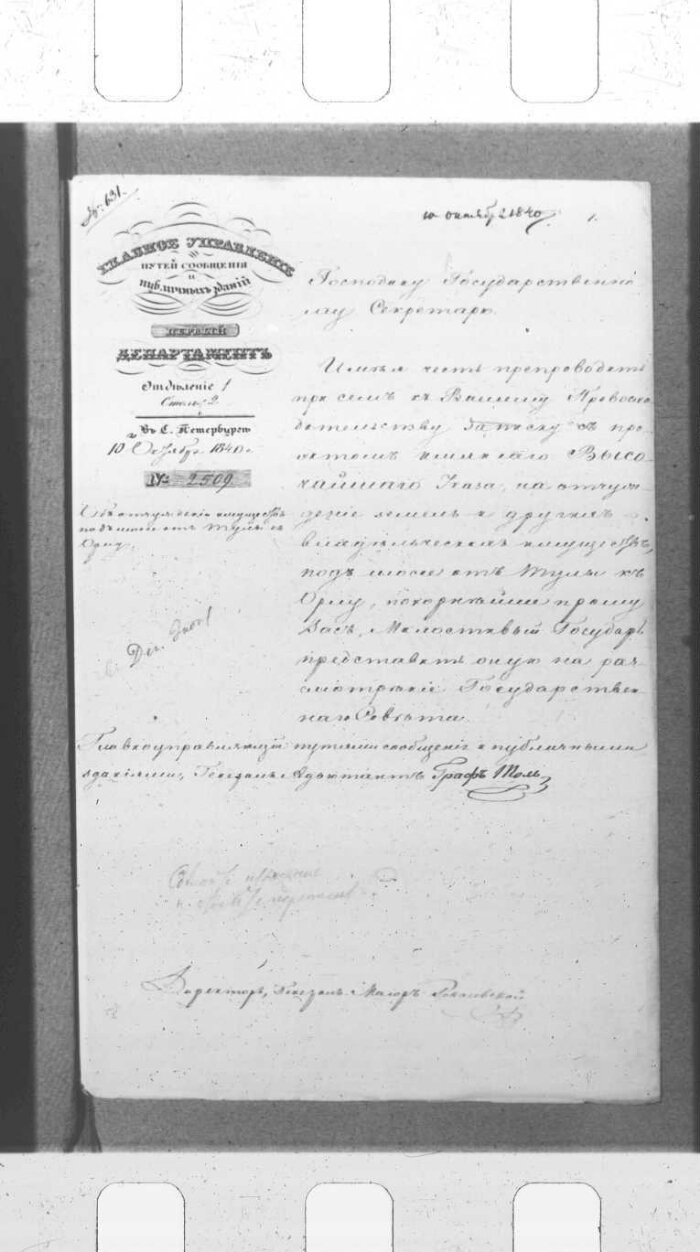 № 631.
10 октября 1840 1.
ГЛАВНОЕ УПРАВЛЕНІЕ
ПУТЕЙ СООБЩЕНІЯ
И
ПУБЛИЧНЫХЪ ЗДАНІЙ
ПЕРВЫЙ
ДЕПАРТАМЕНТЪ
Отдѣленіе 1
Столъ 2
Въ С. Петербургѣ
10 Октября 1840 г.
№ 2509
Объ отчужденіи имуществъ
подъ шоссе отъ Тулы къ
Орлу.
Господину Государственно
му Секретарю.
Имѣя честь препроводить
при семъ къ Вашему Превосхо
дительству Записку съ про
эктомъ имяннаго Высо
чайшаго Указа, на отчуж
деніе земель и другихъ
владѣльческихъ имуществъ,
подъ шоссе отъ Тулы къ
Орлу, покорнѣйше прошу
Васъ, Милостивый Государь
представить оную на раз
смотрѣніе Государствен
наго Совѣта.
Главноуправляющій путями сообщенія и публичными
зданіями, Генералъ-Адъютантъ Графъ Толь
Директоръ, Генералъ-Маіоръ